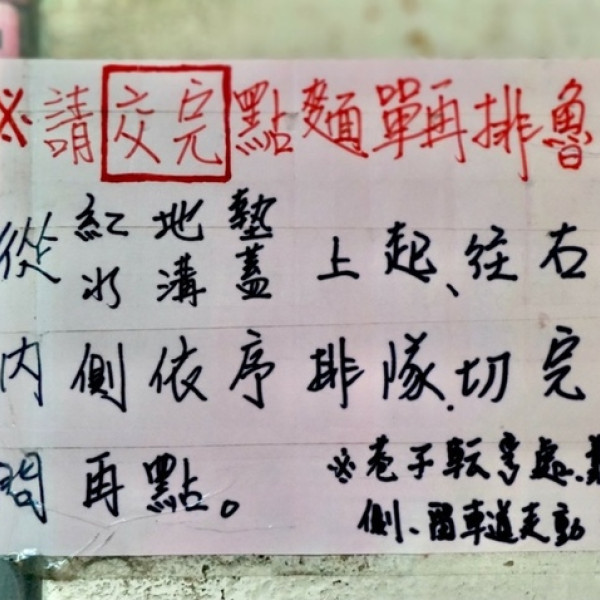 ※請交完點麵單再排魯
從紅地墊上起、往右
水溝蓋
內側依序排隊.切完
問再點。
※巷子転彎處.靠
側、留車道走動